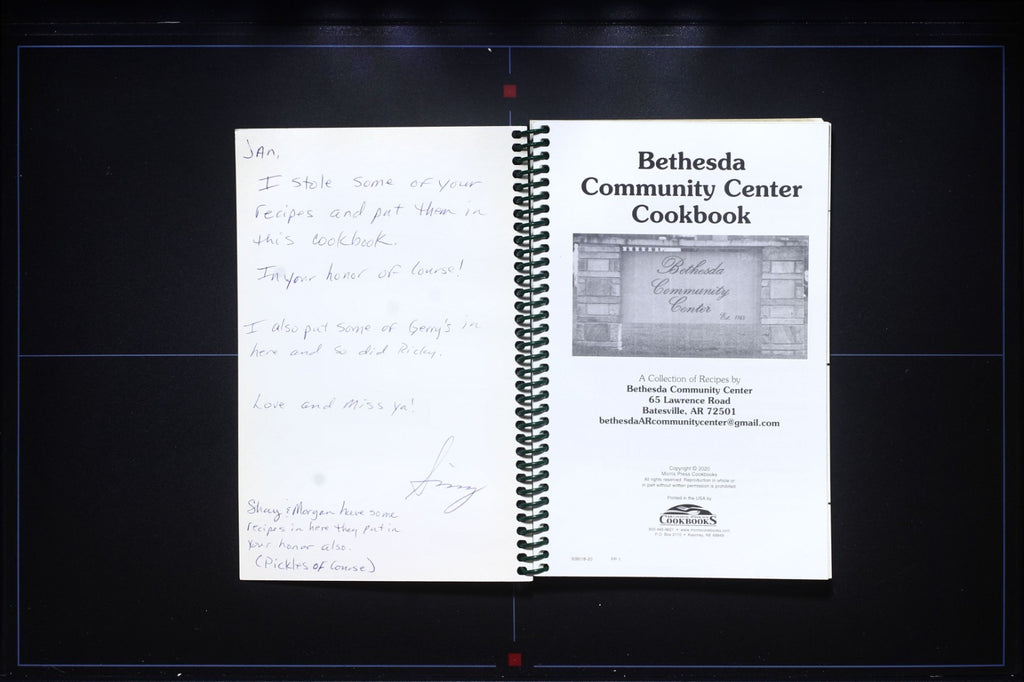 JAn,
I stole some of your
recipes and put them in
this cookbook.
In your honor of course!
I also put some of Gerry's in
here and so did Ricky.
Love and Miss ya!
Shay & Morgan have some
recipes in here they put in
your honor also.
(Pickles of Course)
Bethesda
Community Center
Cookbook
Bethesda
Community
Center
A Collection of Recipes by
Bethesda Community Center
65 Lawrence Road
Batesville, AR 72501
bethesdaARcommunitycenter@gmail.com
Copyright © 2020
Morris Press Cookbooks
All rights reserved. Reproduction in whole or
in part without written permission is prohibited.
Printed in the USA by
COOKBOOKS